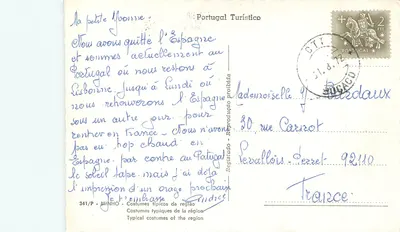 Portugal Turístico
Ma petite Yvonne.
Nous avons quitté l'Espagne
et sommes actuellement au
Portugal où nous restons à
Lisbonne jusqu'à lundi où
nous retrouverons l'Espagne
sous un autre jour pour
rentrer en France. Nous n'avons
pas eu trop chaud en
Espagne par contre au Portugal
le soleil tape mais j'ai déjà
l'impression d'un orage prochain
Je t'embrasse
541/P - MINHO - Costumes típicos da região
Costumes typiques de la région
Typical costumes of the region
CTT
8.72
Mademoiselle Y
30 rue Carnot
Levallois-Perret 92110
France